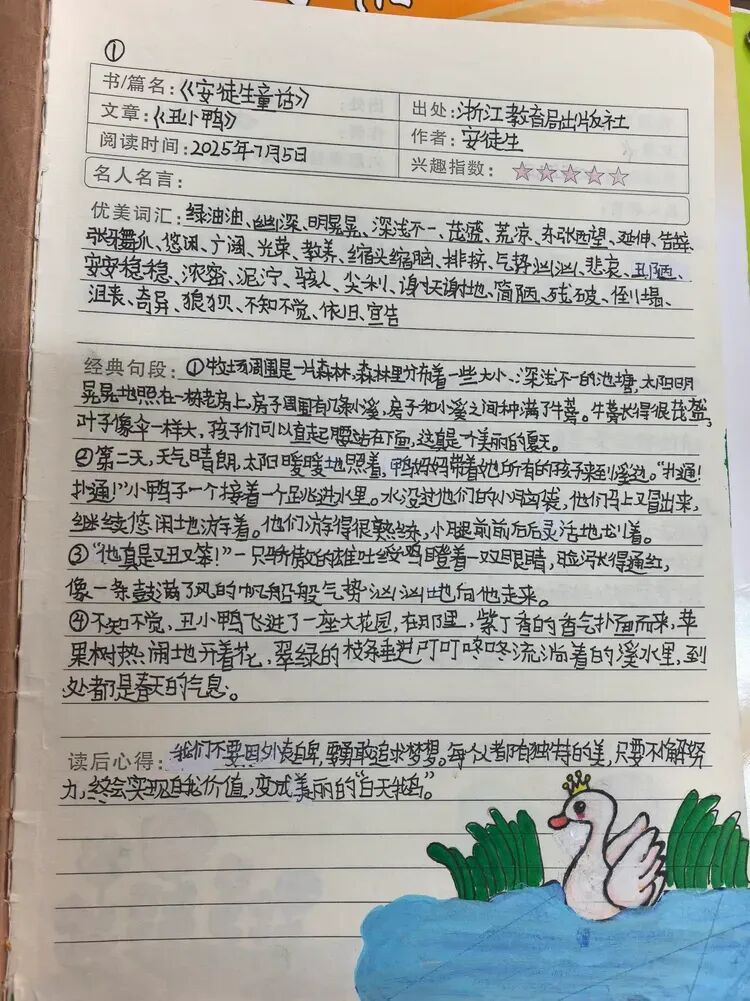 ①
书/篇名：《安徒生童话》 出处：浙江教育局出版社
文章：《丑小鸭》 作者：安徒生
阅读时间：2025年7月5日 兴趣指数：☆☆☆☆☆
名人名言：
优美词汇：绿油油、幽深、明晃晃、深浅不一、茂盛、荒凉、东张西望、延伸、告辞、
张牙舞爪、悠闲、广阔、光荣、教养、缩头缩脑、排挤、气势汹汹、悲哀、丑陋、
安安稳稳、浓密、泥泞、骇人、尖利、谢天谢地、简陋、残破、倒塌、
沮丧、奇异、狼狈、不知不觉、依旧、宣告
经典句段：①牧场周围是一片森林，森林里分布着一些大小、深浅不一的池塘，太阳明
晃晃地照在一栋老房上，房子周围有几条小溪，房子和小溪之间种满了牛蒡。牛蒡长得很茂盛，
叶子像伞一样大，孩子们可以直起腰站在下面，这真是个美丽的夏天。
②第二天，天气晴朗，太阳暖暖地照着，鸭妈妈带着她所有的孩子来到溪边。“扑通！
扑通！”小鸭子一个接着一个跳进水里。水没过他们的小脑袋，他们马上又冒出来，
继续悠闲地游着。他们游得很熟练，小腿前前后后灵活地划着。
③“他真是又丑又笨！”一只骄傲的雄吐绶鸡瞪着一双眼睛，脸涨得通红，
像一条鼓满了风的帆船般气势汹汹地向他走来。
④不知不觉，丑小鸭飞进了一座大花园，在那里，紫丁香的香气扑面而来，苹
果树热闹地开着花，翠绿的枝条垂进叮叮咚咚流淌着的溪水里，到
处都是春天的气息。
读后心得：我们不要因外表自卑，要勇敢追求梦想。每个人都有独特的美，只要不懈努
力，终会实现自我价值，变成美丽的“白天鹅”。